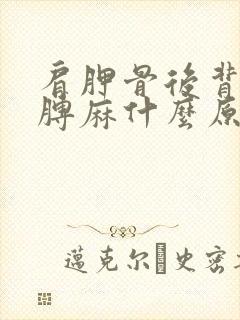 肩胛骨後背
膊麻什麼原
邁克尔 史密